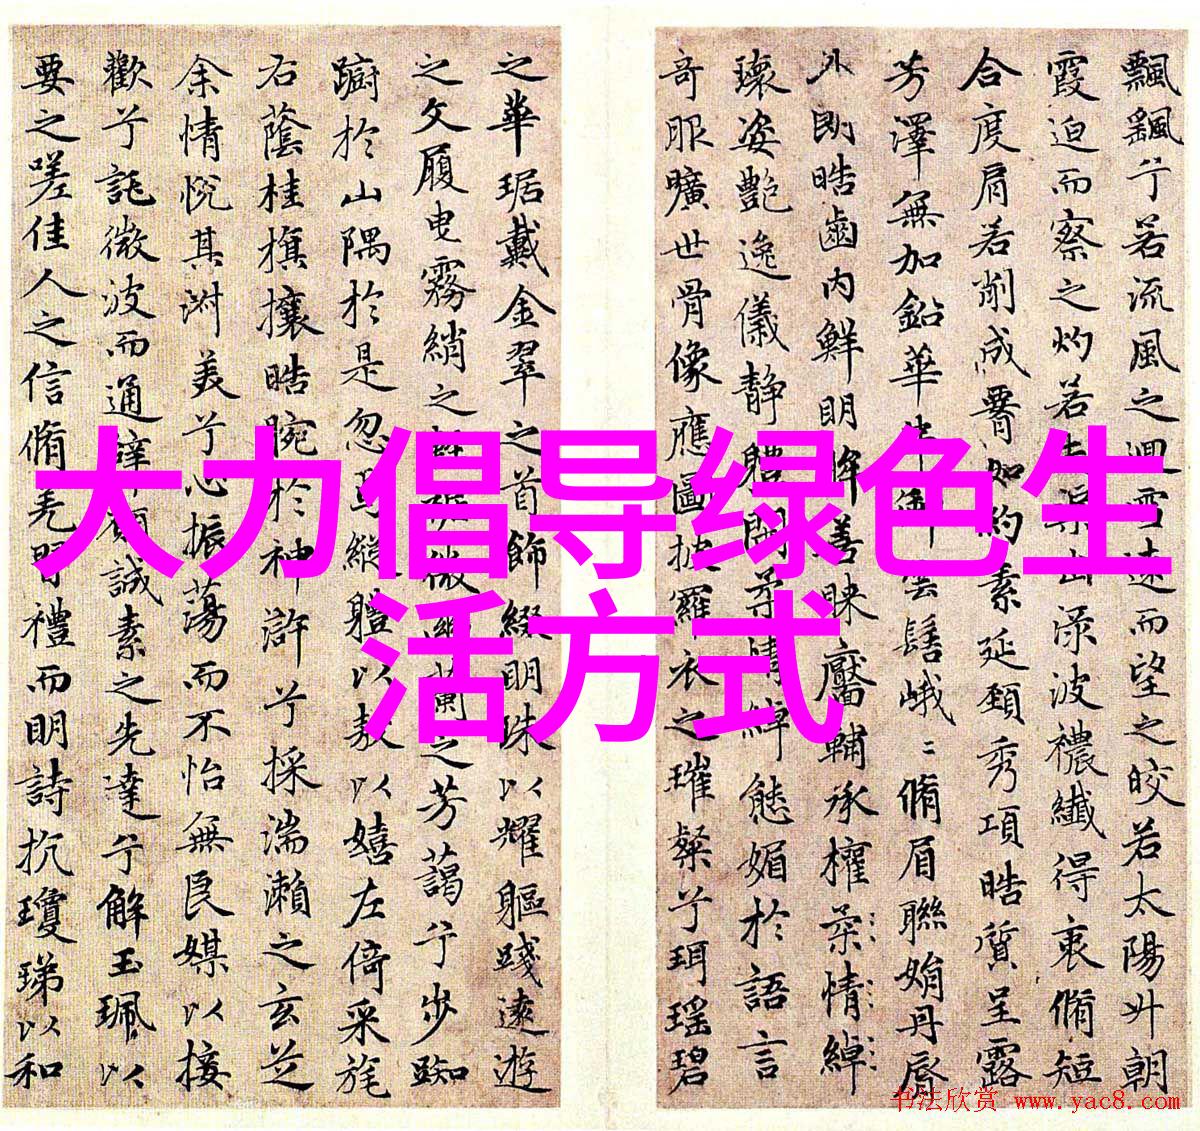 大力倡导绿色生
活方式
飄颻兮若流風之迴雪遠而望之皎若太陽升朝
霞迫而察之灼若夫渠出淥波襛纖得衷脩短
合度肩若削成腰如約素延頸秀項皓質呈露
芳澤無加鉛華弗御雲髻峨〻脩眉聯娟丹脣
外朗皓齒內鮮明眸善睞靨輔承權柔情綽
瓌姿艷逸儀靜體閑柔情綽態媚於語言
奇服曠世骨像應圖披羅衣之璀粲兮珥瑤碧
之華琚戴金翠之首飾綴明珠以耀軀踐遠遊
之文履曳霧綃之輕裾微幽蘭之芳藹兮步踟
躕於山隅於是忽焉縱體以敖以嬉左倚采旄
右蔭桂旗攘皓腕於神滸兮採湍瀨之玄芝
余情悅其淑美兮心振蕩而不怡無良媒以接
歡兮託微波而通辭願誠素之先達兮解玉珮以
要之嗟佳人之信脩羌習禮而明詩抗瓊珶以和
书法欣赏 www.yac8.com